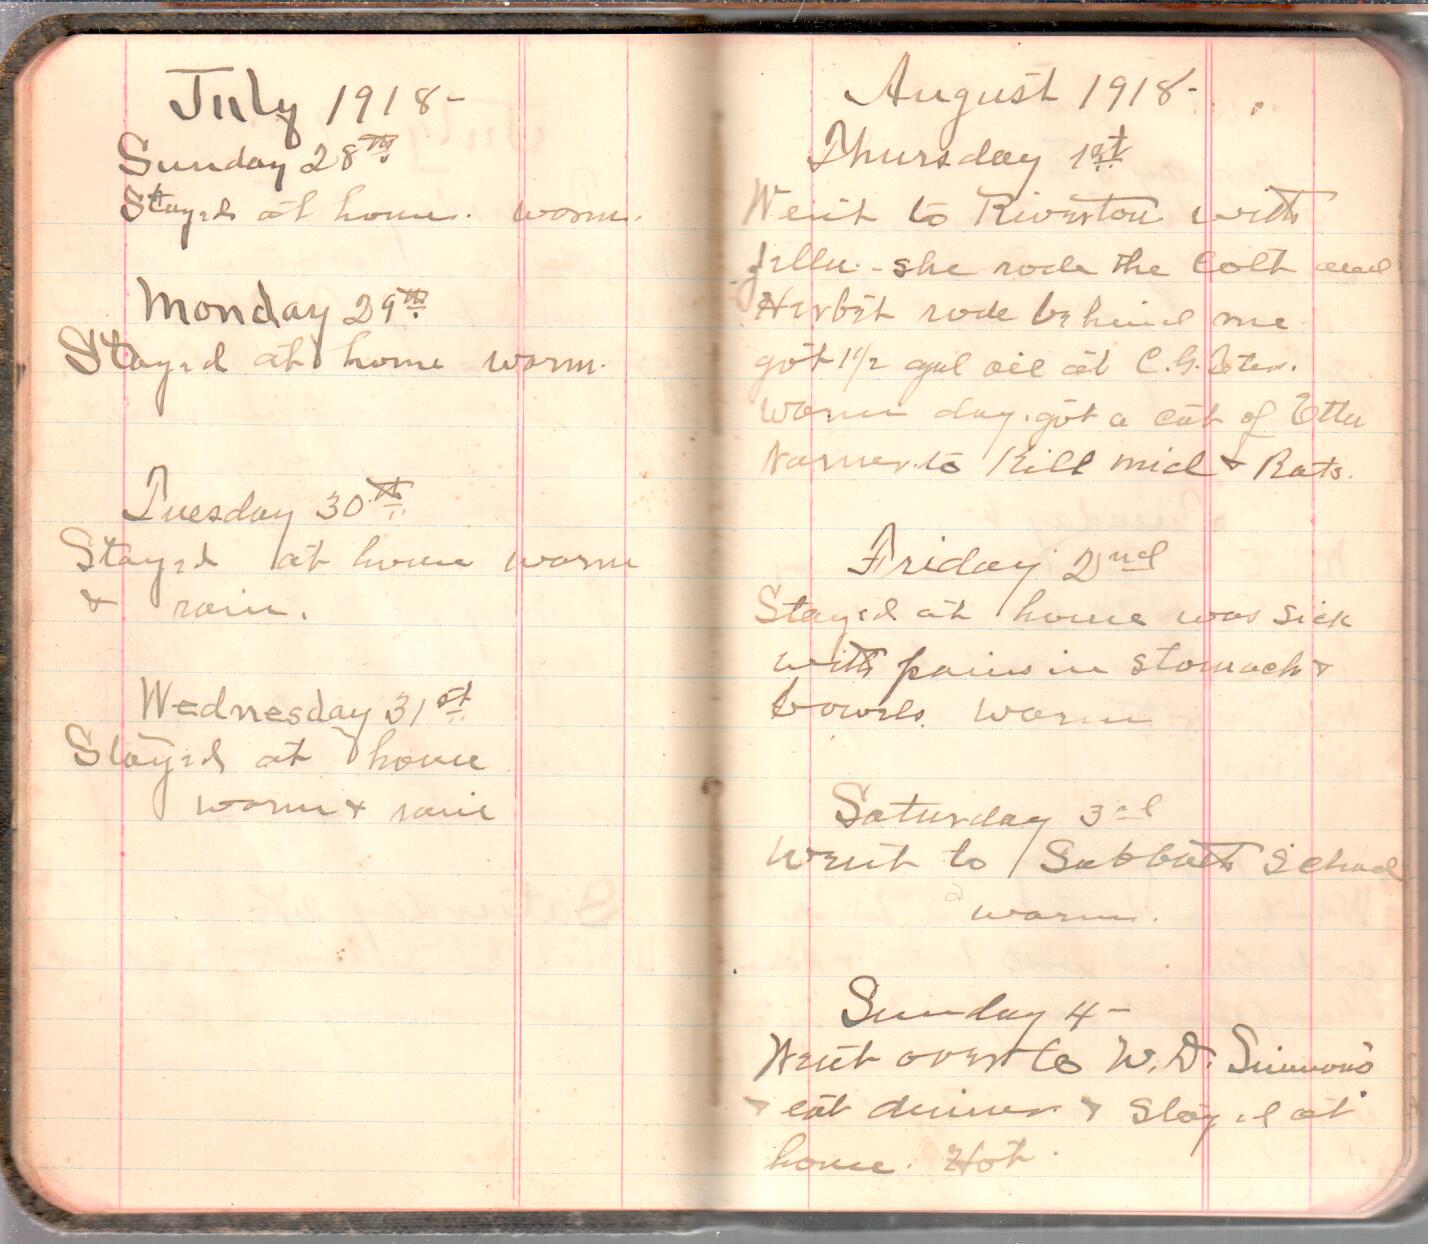 July 1918-
Sunday 28th
Stayed at home. warm.
Monday 29th
Stayed at home warm.
Tuesday 30th
Stayed at home warm
& rain.
Wednesday 31st
Stayed at home
warm & rain
August 1918-
Thursday 1st
Went to Riverton with
- she rode the Colt and
Herbit rode behind me
got 1 1/2 gal oil at C.G.
warm day. got a cat of Etta
to Kill mice & Rats.
Friday 2nd
Stayed at home was sick
with pains in stomach &
bowels. warm
Saturday 3rd
Went to Sabbath School
warm.
Sunday 4-
Went over to W. D. Simmons
& eat dinner & Stayed at
home. Hot.